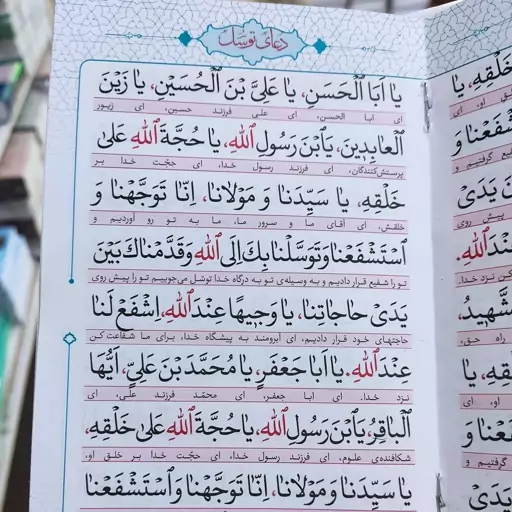 دعای توسل
یا اَبَا الْحَسَنِ، یا عَلِیَّ بْنَ الْحُسَیْنِ، یا زَیْنَ
ای ابا الحسن، ای علی فرزند حسین، ای زیور
الْعابِدینَ، یَابْنَ رَسُولِ اللهِ، یا حُجَّةَ اللهِ عَلیٰ
پرستش‌کنندگان، ای فرزند رسول خدا، ای حجّت خدا بر
خَلْقِهِ، یا سَیِّدَنا وَ مَوْلانا، اِنّا تَوَجَّهْنا وَ
خلقش، ای آقای ما و سرور ما، ما به تو رو آوردیم و
اسْتَشْفَعْنا وَ تَوَسَّلْنا بِكَ اِلَی اللهِ وَ قَدَّمْناكَ بَیْنَ
تو را شفیع قرار دادیم و به وسیله‌ی تو به درگاه خدا توسّل می‌جوییم تو را پیش روی
یَدَیْ حاجاتِنا، یا وَجیهًا عِنْدَ اللهِ، اِشْفَعْ لَنا
حاجتهای خود قرار دادیم، ای آبرومند به پیشگاه خدا، برای ما شفاعت کن
عِنْدَ اللهِ. یا اَبا جَعْفَرٍ، یا مُحَمَّدَ بْنَ عَلِیٍّ، اَیُّهَا
نزد خدا. ای ابا جعفر، ای محمّد فرزند علی، ای
الْباقِرُ، یَابْنَ رَسُولِ اللهِ، یا حُجَّةَ اللهِ عَلیٰ خَلْقِهِ،
شکافنده‌ی علوم، ای فرزند رسول خدا، ای حجّت خدا بر خلق او،
یا سَیِّدَنا وَ مَوْلانا، اِنّا تَوَجَّهْنا وَ اسْتَشْفَعْنا
خَلْقِهِ، یا
او، ای
گرفتیم و
یَدَیْ
پیش روی
عِنْدَ اللهِ.
کن نزد خدا.
راه حق،
خَلْقِهِ، یا
او، ای
گرفتیم و
یَدَیْ